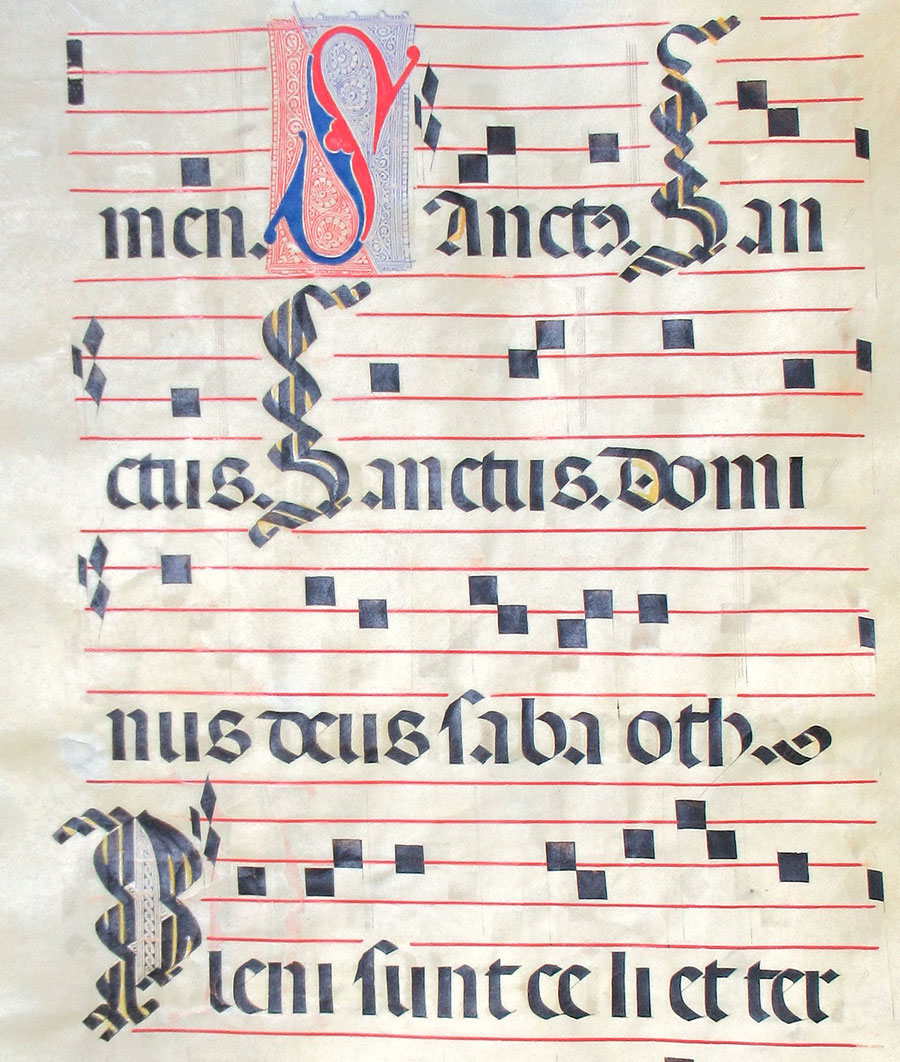 men. Sanctꝰ. San
ctus. Sanctus. Domi
nus deus sabaoth.
Pleni sunt celi et ter